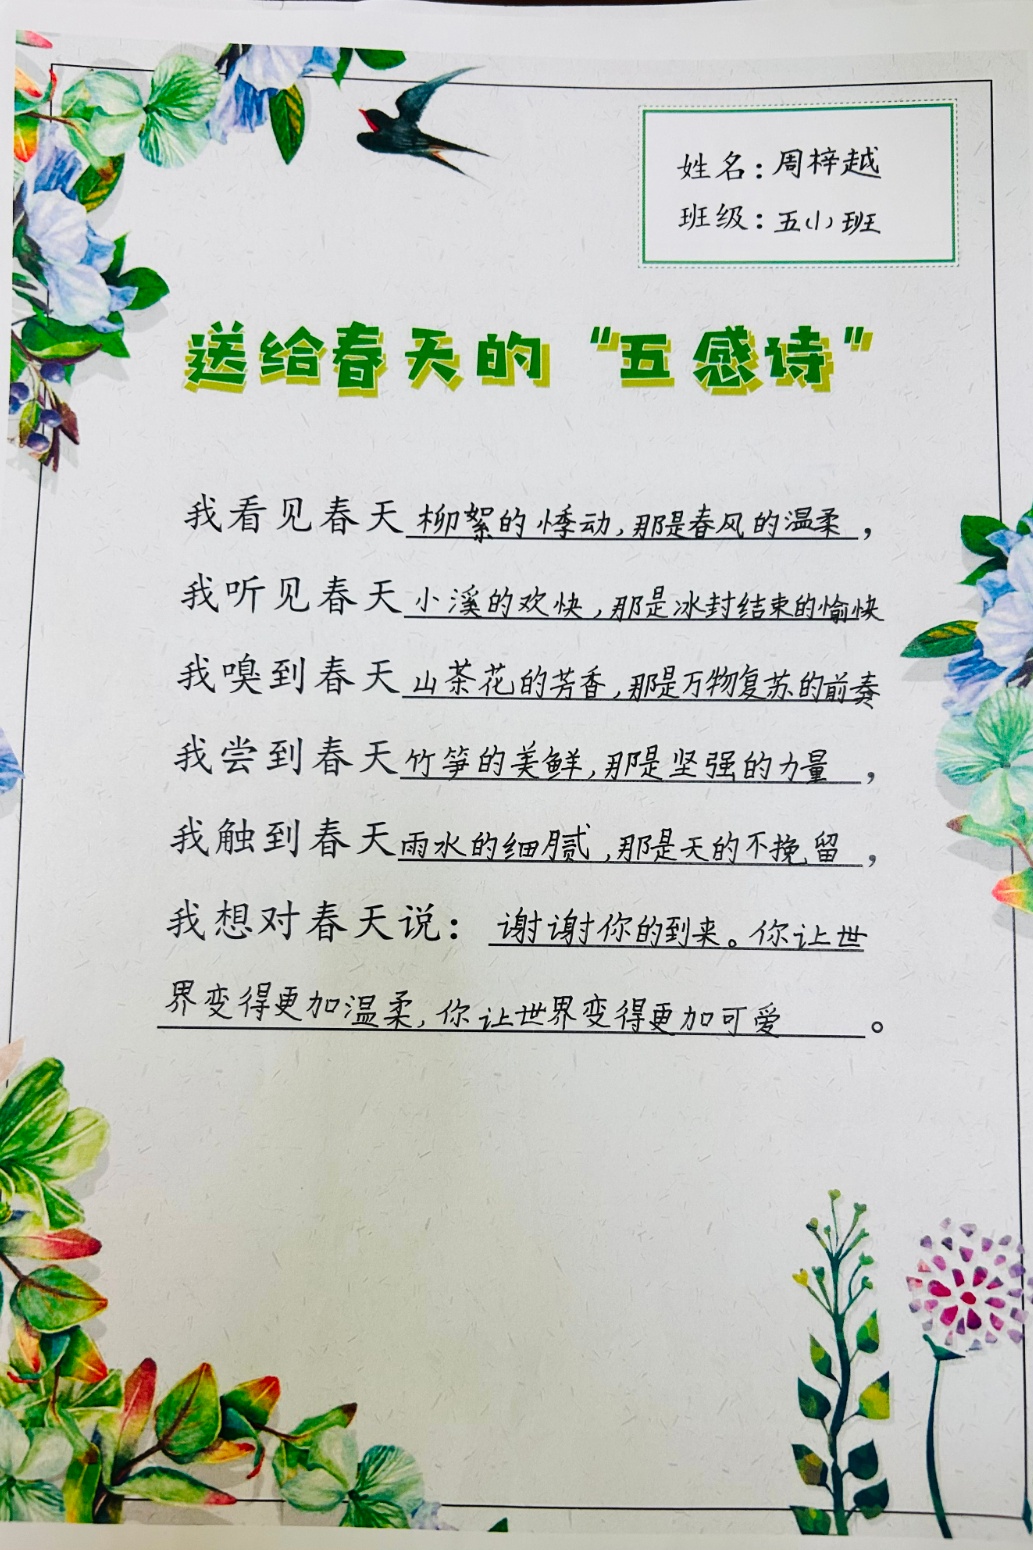 姓名：周梓越
班级：五（1）班
送给春天的“五感诗”
我看见春天柳絮的悸动，那是春风的温柔，
我听见春天小溪的欢快，那是冰封结束的愉快
我嗅到春天山茶花的芳香，那是万物复苏的前奏
我尝到春天竹笋的美鲜，那是坚强的力量，
我触到春天雨水的细腻，那是天的不挽留，
我想对春天说：谢谢你的到来。你让世
界变得更加温柔，你让世界变得更加可爱。